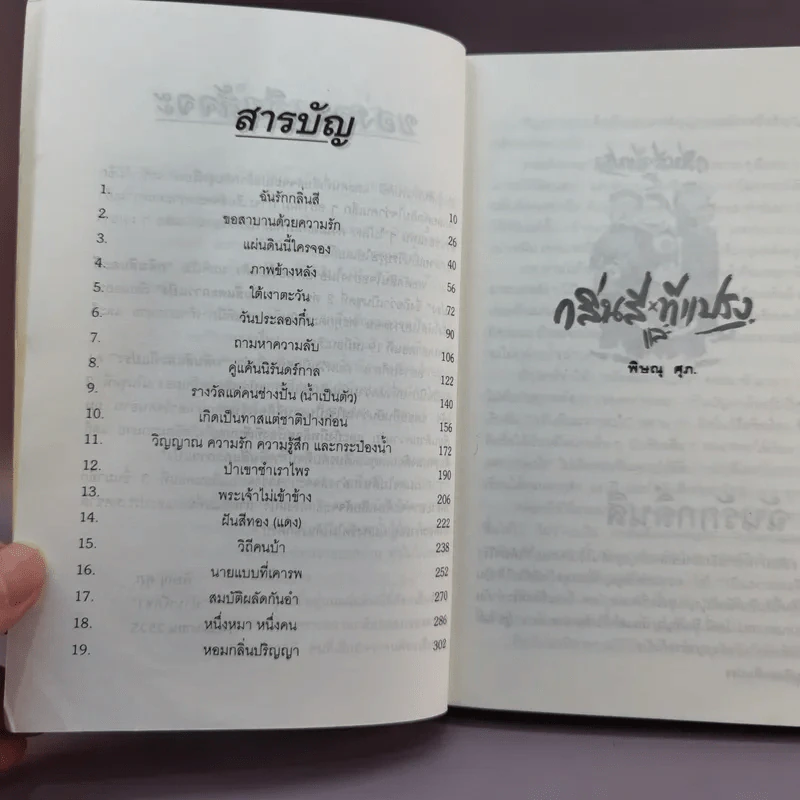 สารบัญ
1. ฉันรักกลิ่นสี 10
2. ขอสาบานด้วยความรัก 26
3. แผ่นดินนี้ใครจอง 40
4. ภาพข้างหลัง 56
5. ใต้เงาตะวัน 72
6. วันประลองกื๋น 90
7. ถามหาความลับ 106
8. คู่แค้นนิรันดร์กาล 122
9. รางวัลแด่คนช่างปั้น (น้ำเป็นตัว) 140
10. เกิดเป็นทาสแต่ชาติปางก่อน 156
11. วิญญาณ ความรัก ความรู้สึก และกระป๋องน้ำ 172
12. ป่าเขาชำเราไพร 190
13. พระเจ้าไม่เข้าข้าง 206
14. ฝันสีทอง (แดง) 222
15. วิถีคนบ้า 238
16. นายแบบที่เคารพ 252
17. สมบัติผลัดกันอำ 270
18. หนึ่งหมา หนึ่งคน 286
19. หอมกลิ่นปริญญา 302
กลิ่นสีและทีแปรง
พิษณุ ศุภ.